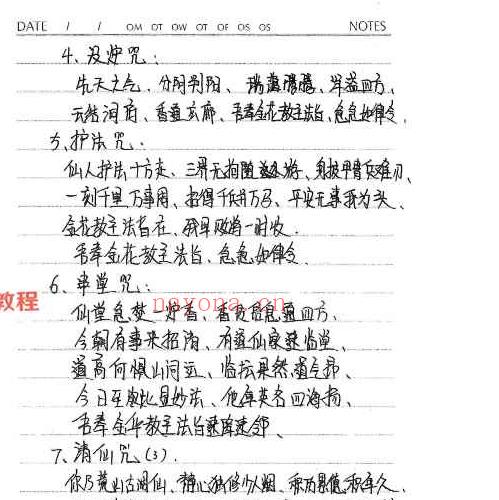 DATE / / OM OT OW OT OF OS OS NOTES
4、没炉咒：
先天之气、分阴判阳、瑞霭腾腾、洋溢四方、
云结洞府、香透玄廊、吾奉金花教主法旨、急急如律令、
5、护法咒：
仙人护法十方走、三界无拘随处游、身披甲胄兵难刃、
一刻千里万事周、招得千兵并万马、平安无事我为头、
金花教主法旨在、一时收、
吾奉金花教主法旨、急急如律令、
6、串堂咒：
仙堂急焚一炉香、香透四方、
今朝有事来招请、有道仙家临堂、
道高何惧山河远、临坛果然道气昂、
今日至此显妙法、他年英名四海扬、
吾奉金华教主法旨
7、清仙咒（3）、
你乃荒山古洞仙、静心独修少人烟、
教程
nayona.cn